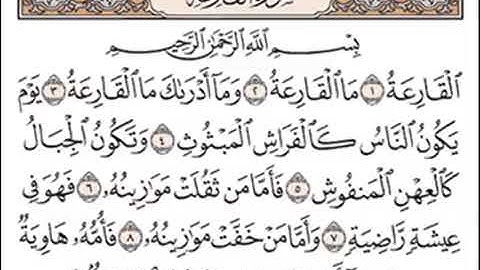 بِسْمِ اللَّهِ الرَّحْمَٰنِ الرَّحِيمِ
الْقَارِعَةُ ١ مَا الْقَارِعَةُ ٢ وَمَا أَدْرَىٰكَ مَا الْقَارِعَةُ ٣ يَوْمَ
يَكُونُ النَّاسُ كَالْفَرَاشِ الْمَبْثُوثِ ٤ وَتَكُونُ الْجِبَالُ
كَالْعِهْنِ الْمَنفُوشِ ٥ فَأَمَّا مَن ثَقُلَتْ مَوَازِينُهُ ٦ فَهُوَ فِي
عِيشَةٍ رَّاضِيَةٍ ٧ وَأَمَّا مَنْ خَفَّتْ مَوَازِينُهُ ٨ فَأُمُّهُ هَاوِيَةٌ